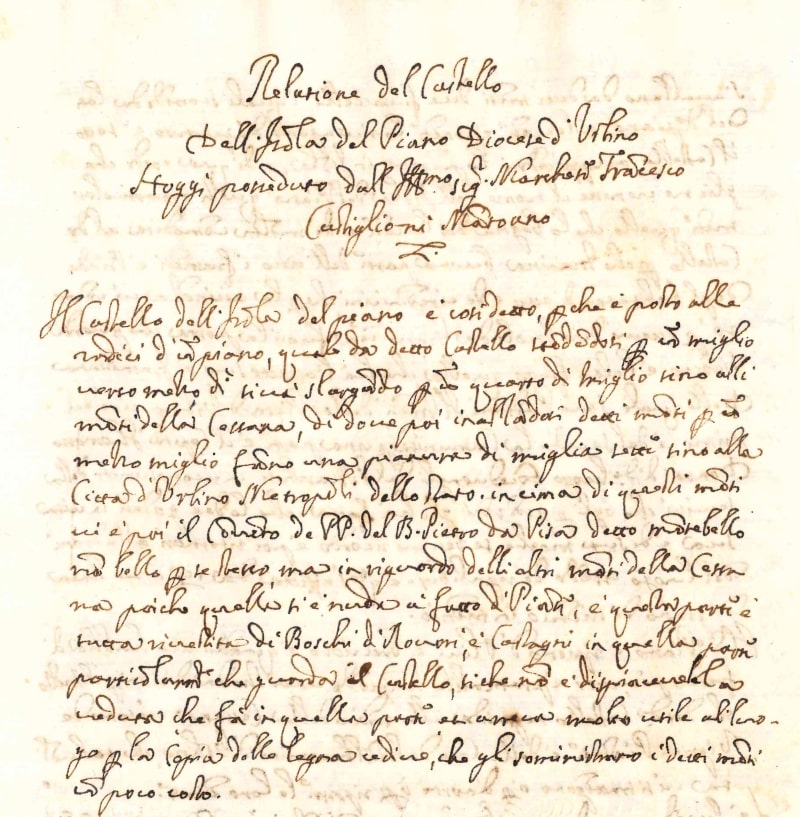 Relatione del Castello
Dell'Isola del Piano Diocese d'Urbino
Hoggi posseduto dall Ill.mo sig.r Marchese Francesco
Castiglioni Mantoano
Il Castello dell'Isola del piano è così detto, p che è posto alle
radici d'un piano, quale da detto Castello p un miglio
verso mezzo dì si và slargando p un quarto di miglio sino alli
monti della Cesana, di dove poi detti monti p un
mezzo miglio fanno una pianura di miglia sette sino alla
Città d'Urbino Metropoli dello stato. in cima di questi monti
vi è poi il Convento de PP. del B. Pietro da Pisa detto montebello
nō bello p se stesso, ma in riguardo delli altri monti della Cesa
na poiche quella si è nuda à fatto di Piante, e questa parte è
tutta rivestita di Boschi di Roveri, è Castagni in quella parte
che guarda il Castello, si che nō è dispiacevole la
veduta che fà in quella parte et arreca molto utile al luo-
go p la Copia delle legna cedue, che gli soministrano i detti monti
cō poco costo.